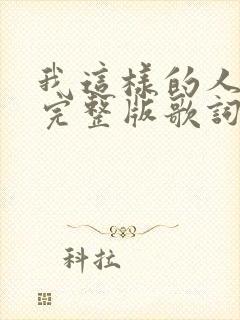 我這樣的人
完整版歌詞
科拉